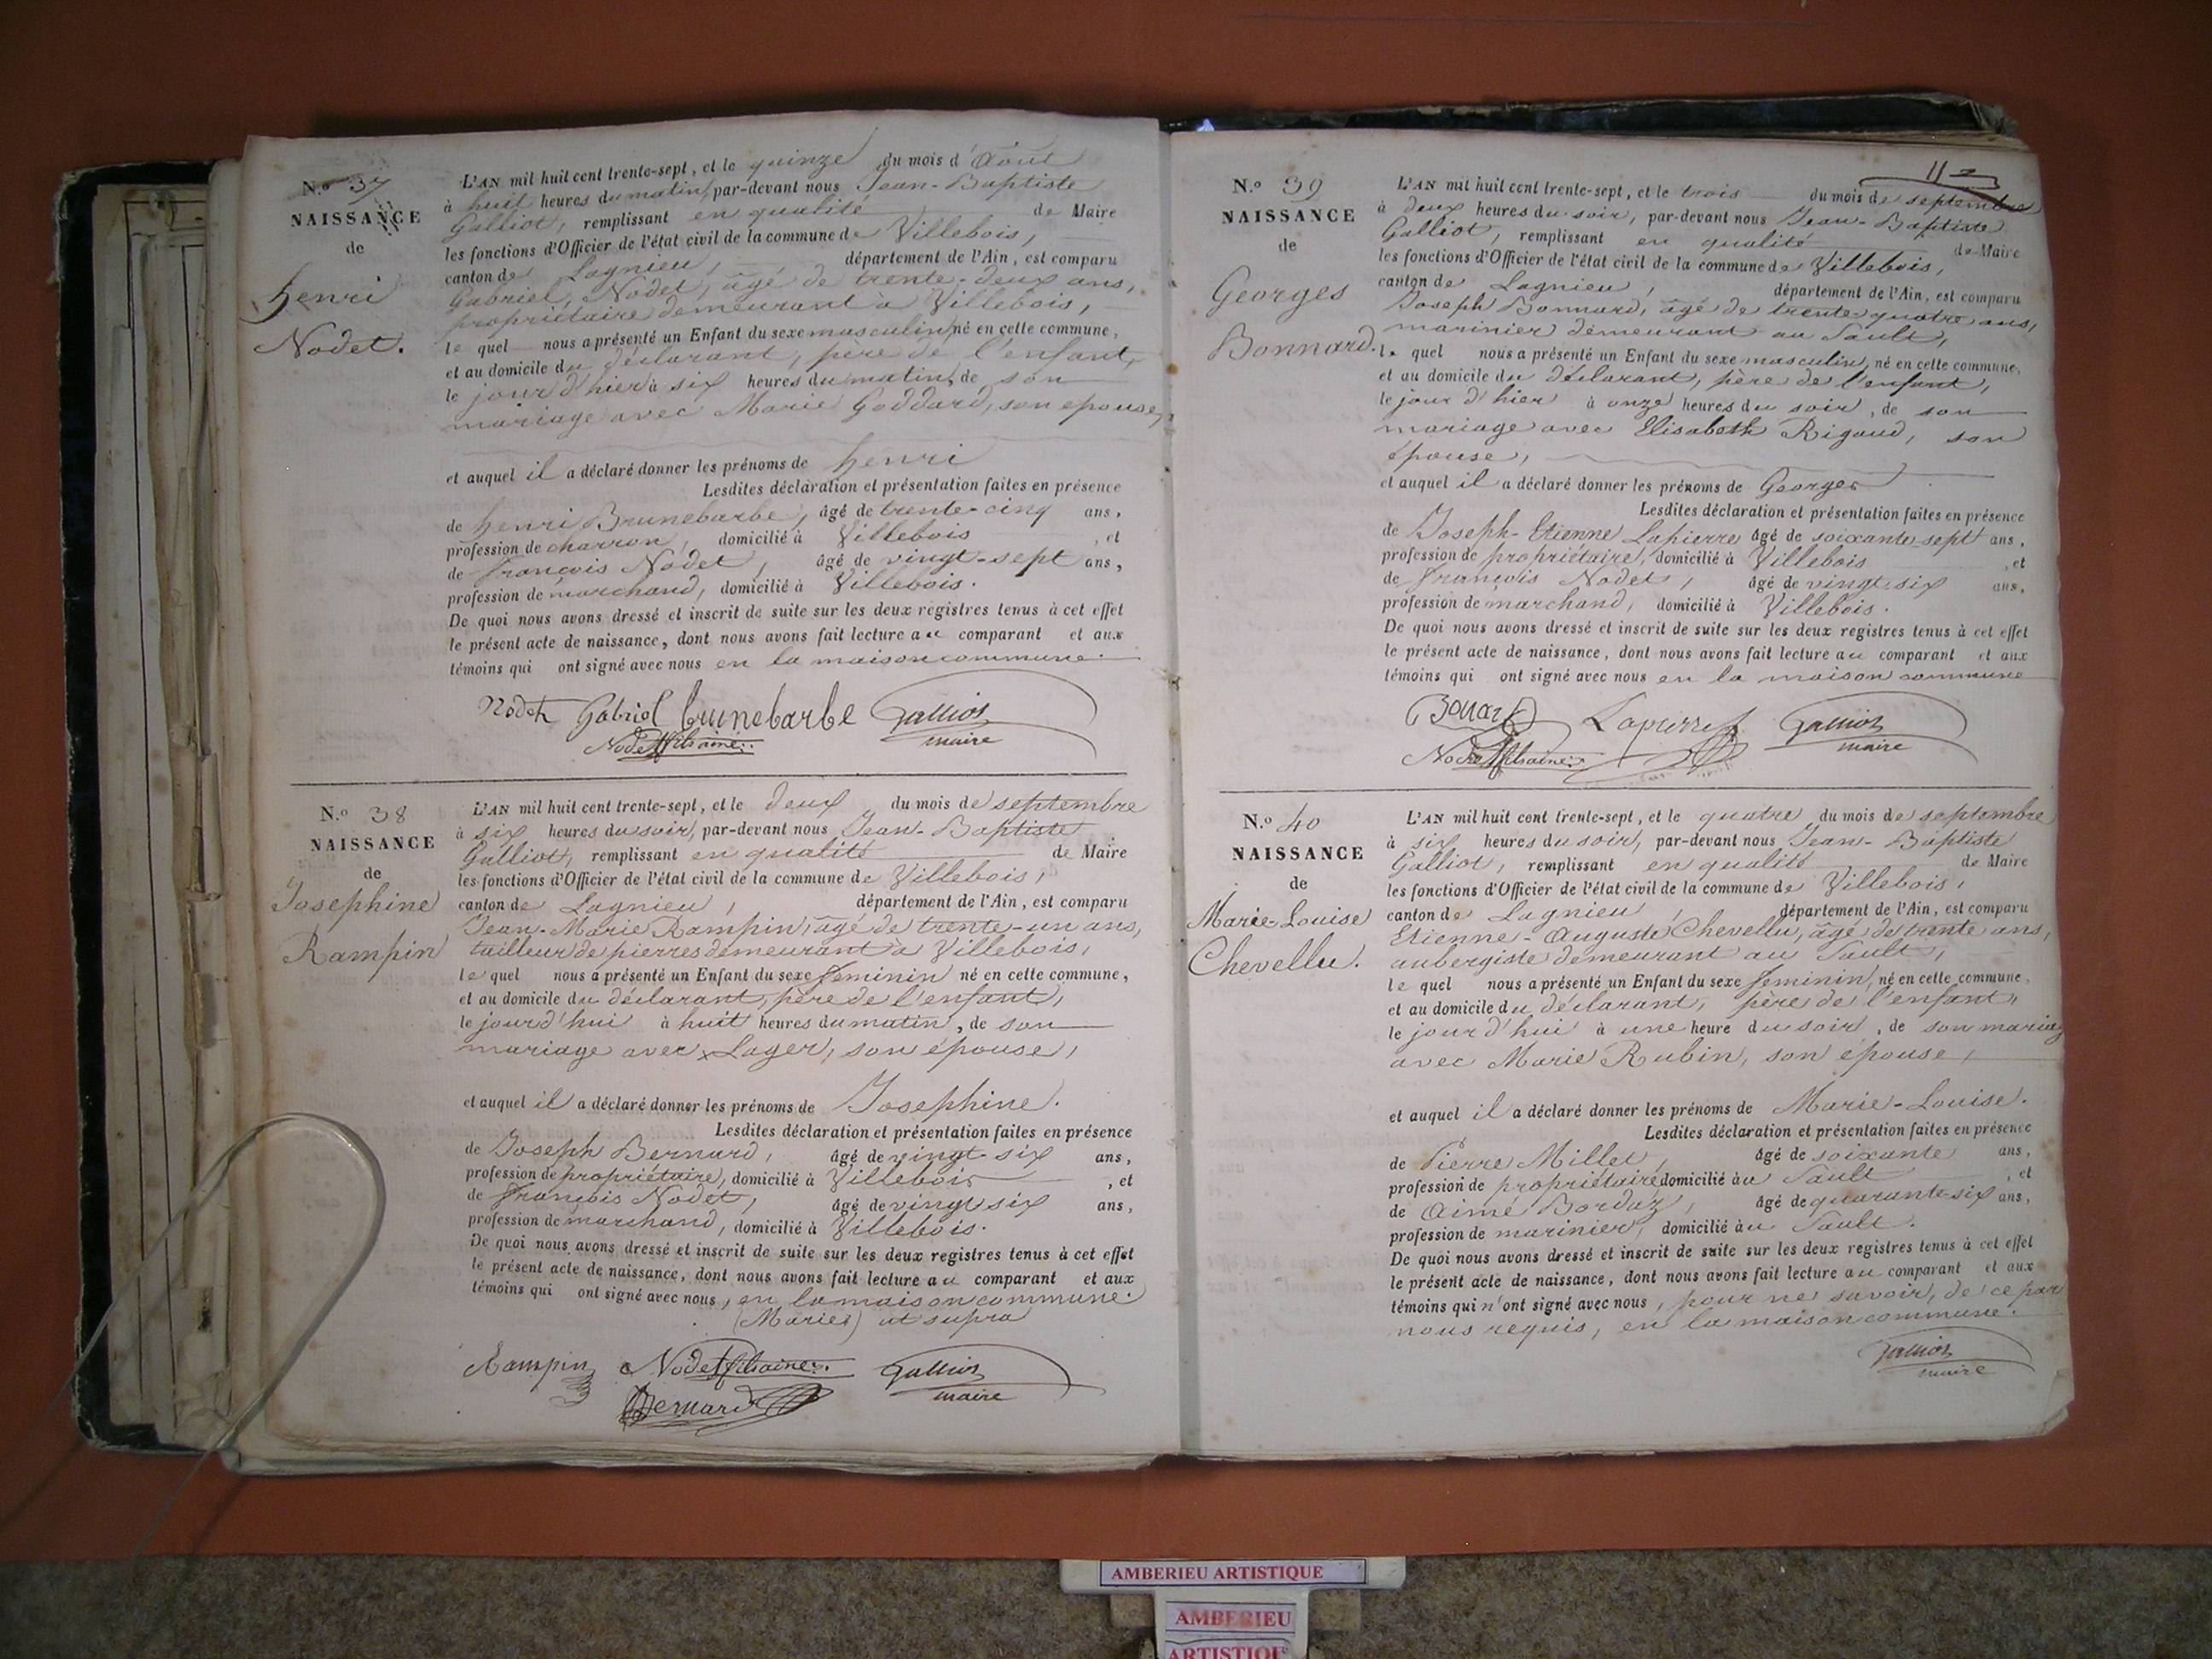 N.o 37
NAISSANCE
de
henri
Nodet.
L'AN mil huit cent trente-sept, et le quinze du mois d'Août
à huit heures du matin, par-devant nous Jean-Baptiste
Galliot, remplissant en qualité de Maire
les fonctions d'Officier de l'état civil de la commune de Villebois,
canton de Lagnieu, département de l'Ain, est comparu
Gabriel, Nodet, âgé de trente-deux ans,
propriétaire demeurant à Villebois,
le quel nous a présenté un Enfant du sexe masculin, né en cette commune,
et au domicile du déclarant, père de l'enfant,
le jour d'hier à six heures du matin, de son
mariage avec Marie Goddard, son epouse,
et auquel il a déclaré donner les prénoms de henri
Lesdites déclaration et présentation faites en présence
de henri Brunebarbe, âgé de trente-cinq ans,
profession de charron, domicilié à Villebois, et
de françois Nodet, âgé de vingt-sept ans,
profession de marchand, domicilié à Villebois.
De quoi nous avons dressé et inscrit de suite sur les deux registres tenus à cet effet
le présent acte de naissance, dont nous avons fait lecture au comparant et aux
témoins qui ont signé avec nous en la maison commune.
Nodet Gabriel brunebarbe Galliot
Nodet fils ainé maire
N.o 38
NAISSANCE
de
Josephine
Rampin
L'AN mil huit cent trente-sept, et le deux du mois de septembre
à six heures du soir, par-devant nous Jean-Baptiste
Galliot, remplissant en qualité de Maire
les fonctions d'Officier de l'état civil de la commune de Villebois,
canton de Lagnieu, département de l'Ain, est comparu
Jean-Marie Rampin, âgé de trente-un ans,
tailleur de pierres demeurant à Villebois,
le quel nous a présenté un Enfant du sexe féminin né en cette commune,
et au domicile du déclarant, père de l'enfant,
le jour d'hui à huit heures du matin, de son
mariage avec x Lager, son épouse,
et auquel il a déclaré donner les prénoms de Josephine.
Lesdites déclaration et présentation faites en présence
de Joseph Bernard, âgé de vingt six ans,
profession de propriétaire, domicilié à Villebois, et
de françois Nodet, âgé de vingt six ans,
profession de marchand, domicilié à Villebois.
De quoi nous avons dressé et inscrit de suite sur les deux registres tenus à cet effet
le présent acte de naissance, dont nous avons fait lecture au comparant et aux
témoins qui ont signé avec nous, en la maison commune.
(Marie) ut supra
Rampin Nodet fils ainé. Galliot
Bernard maire
N.o 39
NAISSANCE
de
Georges
Bonnard.
L'AN mil huit cent trente-sept, et le trois du mois de septembre
à deux heures du soir, par-devant nous Jean-Baptiste
Galliot, remplissant en qualité de Maire
les fonctions d'Officier de l'état civil de la commune de Villebois,
canton de Lagnieu, département de l'Ain, est comparu
Joseph Bonnard, âgé de trente quatre ans,
marinier demeurant au Sault,
le quel nous a présenté un Enfant du sexe masculin, né en cette commune,
et au domicile du déclarant, père de l'enfant,
le jour d'hier à onze heures du soir, de son
mariage avec Elisabeth Rigaud, son
épouse,
et auquel il a déclaré donner les prénoms de Georges
Lesdites déclaration et présentation faites en présence
de Joseph-Etienne Lapierre âgé de soixante-sept ans,
profession de propriétaire, domicilié à Villebois, et
de françois Nodet, âgé de vingt six ans,
profession de marchand, domicilié à Villebois.
De quoi nous avons dressé et inscrit de suite sur les deux registres tenus à cet effet
le présent acte de naissance, dont nous avons fait lecture au comparant et aux
témoins qui ont signé avec nous en la maison commune
Bonard Lapierre Galliot
Nodet fils ainé maire
N.o 40
NAISSANCE
de
Marie-Louise
Chevellu.
L'AN mil huit cent trente-sept, et le quatre du mois de septembre
à six heures du soir, par-devant nous Jean-Baptiste
Galliot, remplissant en qualité de Maire
les fonctions d'Officier de l'état civil de la commune de Villebois,
canton de Lagnieu, département de l'Ain, est comparu
Etienne-Auguste Chevellu, âgé de trente ans,
aubergiste demeurant au Sault,
le quel nous a présenté un Enfant du sexe féminin, né en cette commune,
et au domicile du déclarant, père de l'enfant,
le jour d'hui à une heure du soir, de son mariag
avec Marie Rubin, son épouse,
et auquel il a déclaré donner les prénoms de Marie-Louise.
Lesdites déclaration et présentation faites en présence
de Pierre Millet, âgé de soixante ans,
profession de propriétaire domicilié au Sault, et
de Aimé Bordaz, âgé de quarante-six ans,
profession de marinier, domicilié au Sault.
De quoi nous avons dressé et inscrit de suite sur les deux registres tenus à cet effet
le présent acte de naissance, dont nous avons fait lecture au comparant et aux
témoins qui n'ont signé avec nous, pour ne savoir, de ce par
nous requis, en la maison commune.
Galliot
maire
AMBERIEU ARTISTIQUE
AMBERIEU
ARTISTIQUE